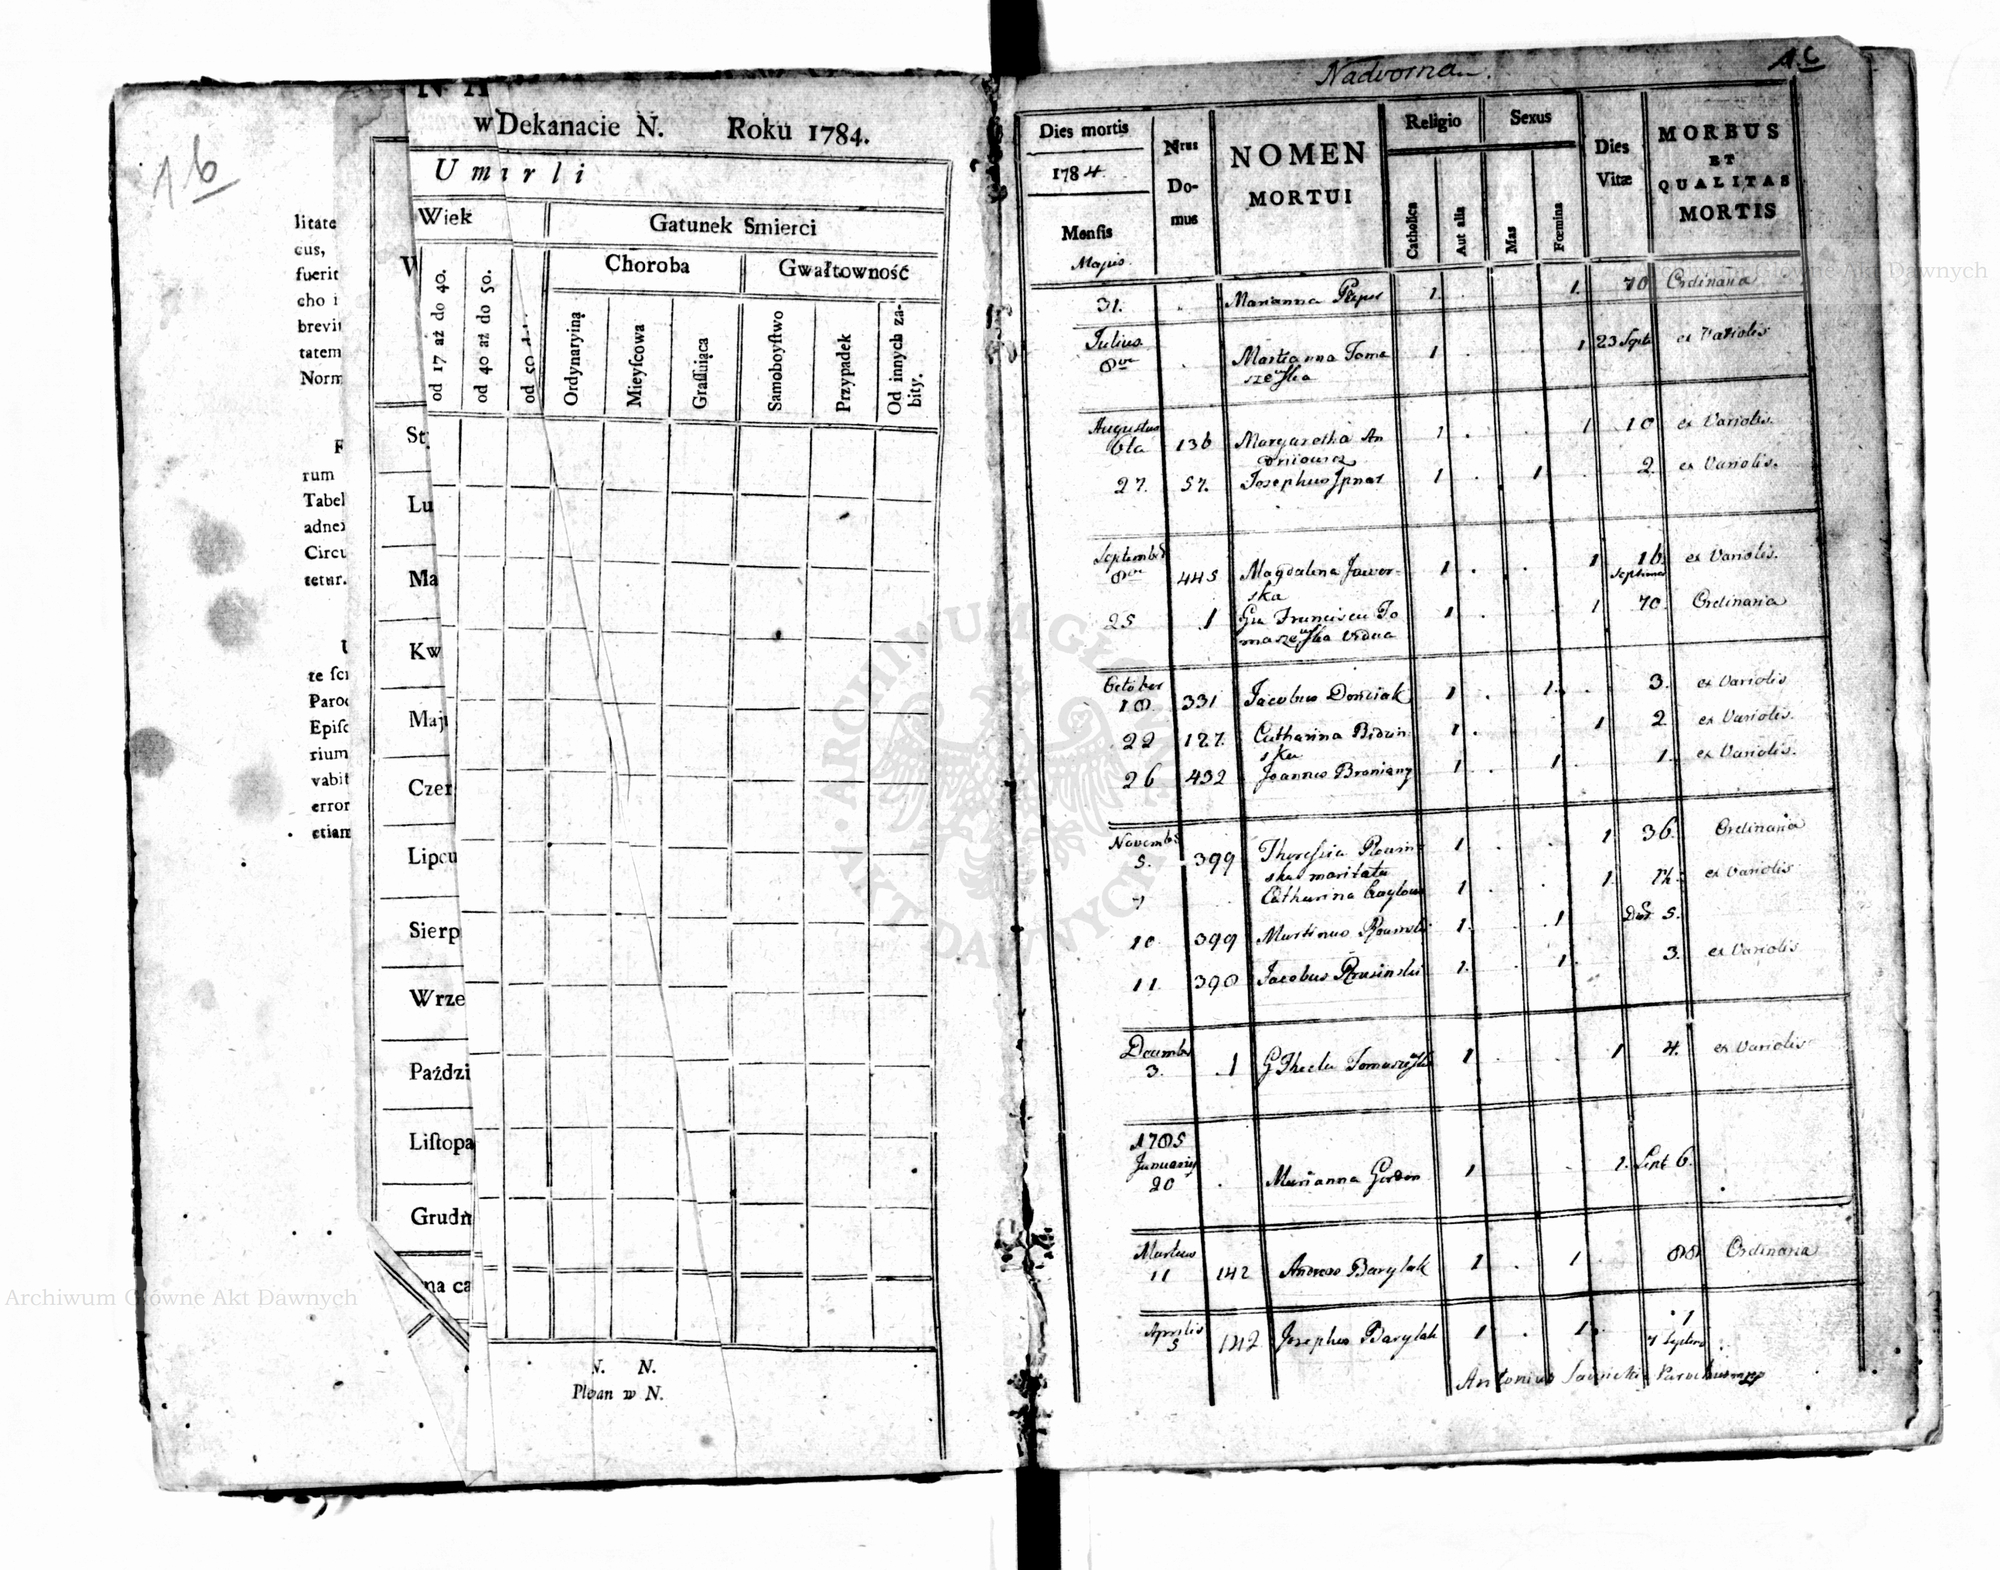 1b
N A
w Dekanacie N. Roku 1784.
Umirli
Wiek
Gatunek Smierci
Choroba
Gwałtowność
od 17 aż do 40.
od 40 aż do 50.
od 50
Ordynaryiną
Mieyſcowa
Graſſuiąca
Samoboyſtwo
Przypadek
Od innych za-
bity.
litate
cus,
fuerit
cho i
brevit
tatem
Norm
rum
Tabel
adnex
Circu
tetur.
te ſcr
Paroc
Epiſc
rium
vabit
error
etiam
St
Lu
Ma
Kw
Maj
Czer
Lipcu
Sierp
Wrze
Paździ
Liſtopa
Grudn
na ca
N. N.
Pleban w N.
Nadvorna
1.C
Dies mortis
1784.
Mensis
Majus.
Nrus
Do-
mus
NOMEN
MORTUI
Religio
Catholica
Aut alia
Sexus
Mas
Fœmina
Dies
Vitæ
MORBUS
ET
QUALITAS
MORTIS
31. Marianna 1. 1. 70 Ordinaria
Julius
8va Marianna Toma 1 1 23 Sept. ex Variolis
szewska
Augustus
6ta 136 Margaretha An 1 1 10 ex Variolis.
27. 57. Josephus Ignat 1 1 2. ex Variolis.
September
8va 445 Magdalena Jawor- 1 1 16 ex Variolis.
ska Septimanas
25 1 Gsa Francisca To 1 1 70. Ordinaria
maszewska vidua
October
18 331 Jacobus Donciak 1 1 3. ex Variolis
22 127. Catharina Bidzin 1 1 2. ex Variolis.
ska
26 432 Joannes 1 1 1. ex Variolis.
Novembr
5. 399 Theressia 1 1 36. Ordinaria
ska maritata
7 Catharina 1 1 ex Variolis
10 399 Martinus 1. 1 5.
11. 390 Jacobus Rusinski 1. 1. 3. ex Variolis
Decembr
3. 1 G Thecla Tomaszewska 1 1 4. ex Variolis
1785
January
20 Marianna Gordon 1 1. Sept 6.
Martius
11 142 Andreas Barylak 1 1 88 Ordinaria
Aprilis
5 142 Josephus Barylak 1 1. 1
7 Septem
Antonius Sawicki Parochus mpp
Archiwum Główne Akt Dawnych
ARCHIWUM GŁÓWNE AKT DAWNYCH
Archiwum Główne Akt Dawnych